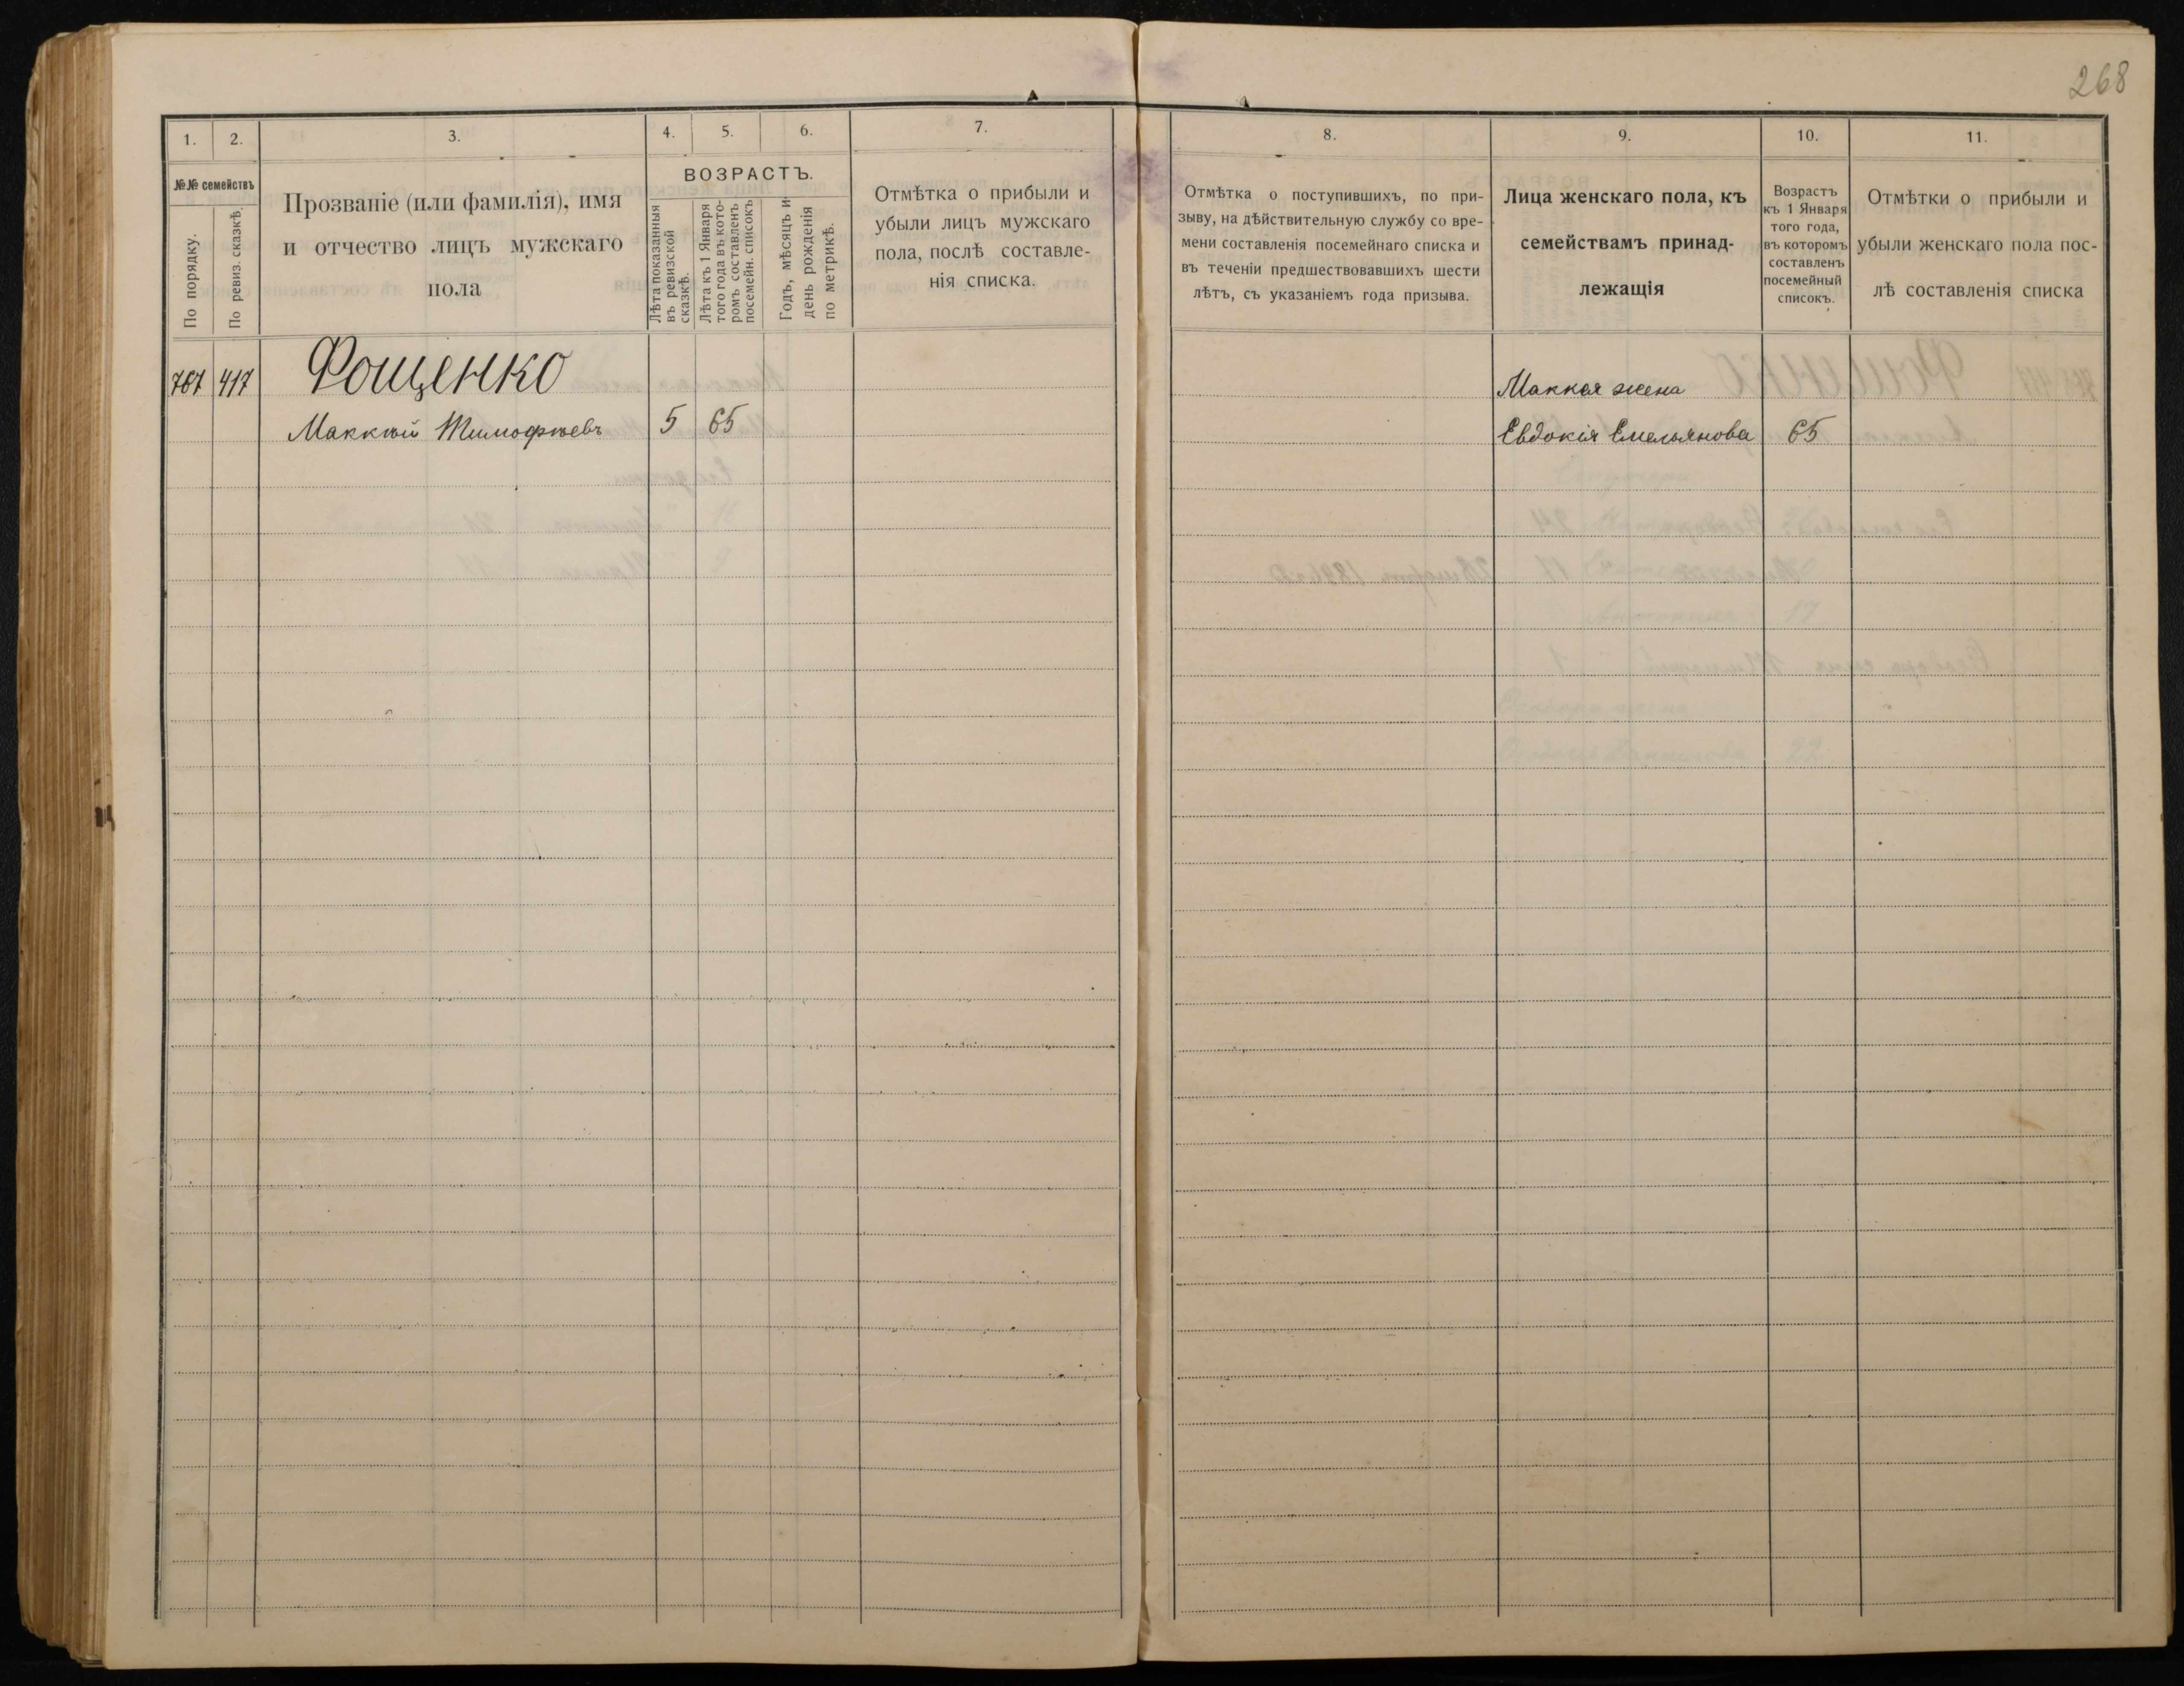 268
1.
2.
3.
4.
5.
6.
7.
№№ семействъ
По порядку.
По ревиз. сказкѣ.
Прозваніе (или фамилія), имя
и отчество лицъ мужскаго
пола
ВОЗРАСТЪ.
Лѣта показанныя
въ ревизской
сказкѣ.
Лѣта къ 1 Января
того года въ кото-
ромъ составленъ
посемейн. списокъ
Годъ, мѣсяцъ и
день рожденія
по метрикѣ.
Отмѣтка о прибыли и
убыли лицъ мужскаго
пола, послѣ составле-
нія списка.
8.
9.
10.
11.
Отмѣтка о поступившихъ, по при-
зыву, на дѣйствительную службу со вре-
мени составленія посемейнаго списка и
въ теченіи предшествовавшихъ шести
лѣтъ, съ указаніемъ года призыва.
Лица женскаго пола, къ
семействамъ принад-
лежащія
Возрастъ
къ 1 Января
того года,
въ которомъ
составленъ
посемейный
списокъ.
Отмѣтки о прибыли и
убыли женскаго пола пос-
лѣ составленія списка
767 417 Фощенко
Маккѣй Тимофѣевъ 5 65
Маккея жена
Евдокія Емельянова 65